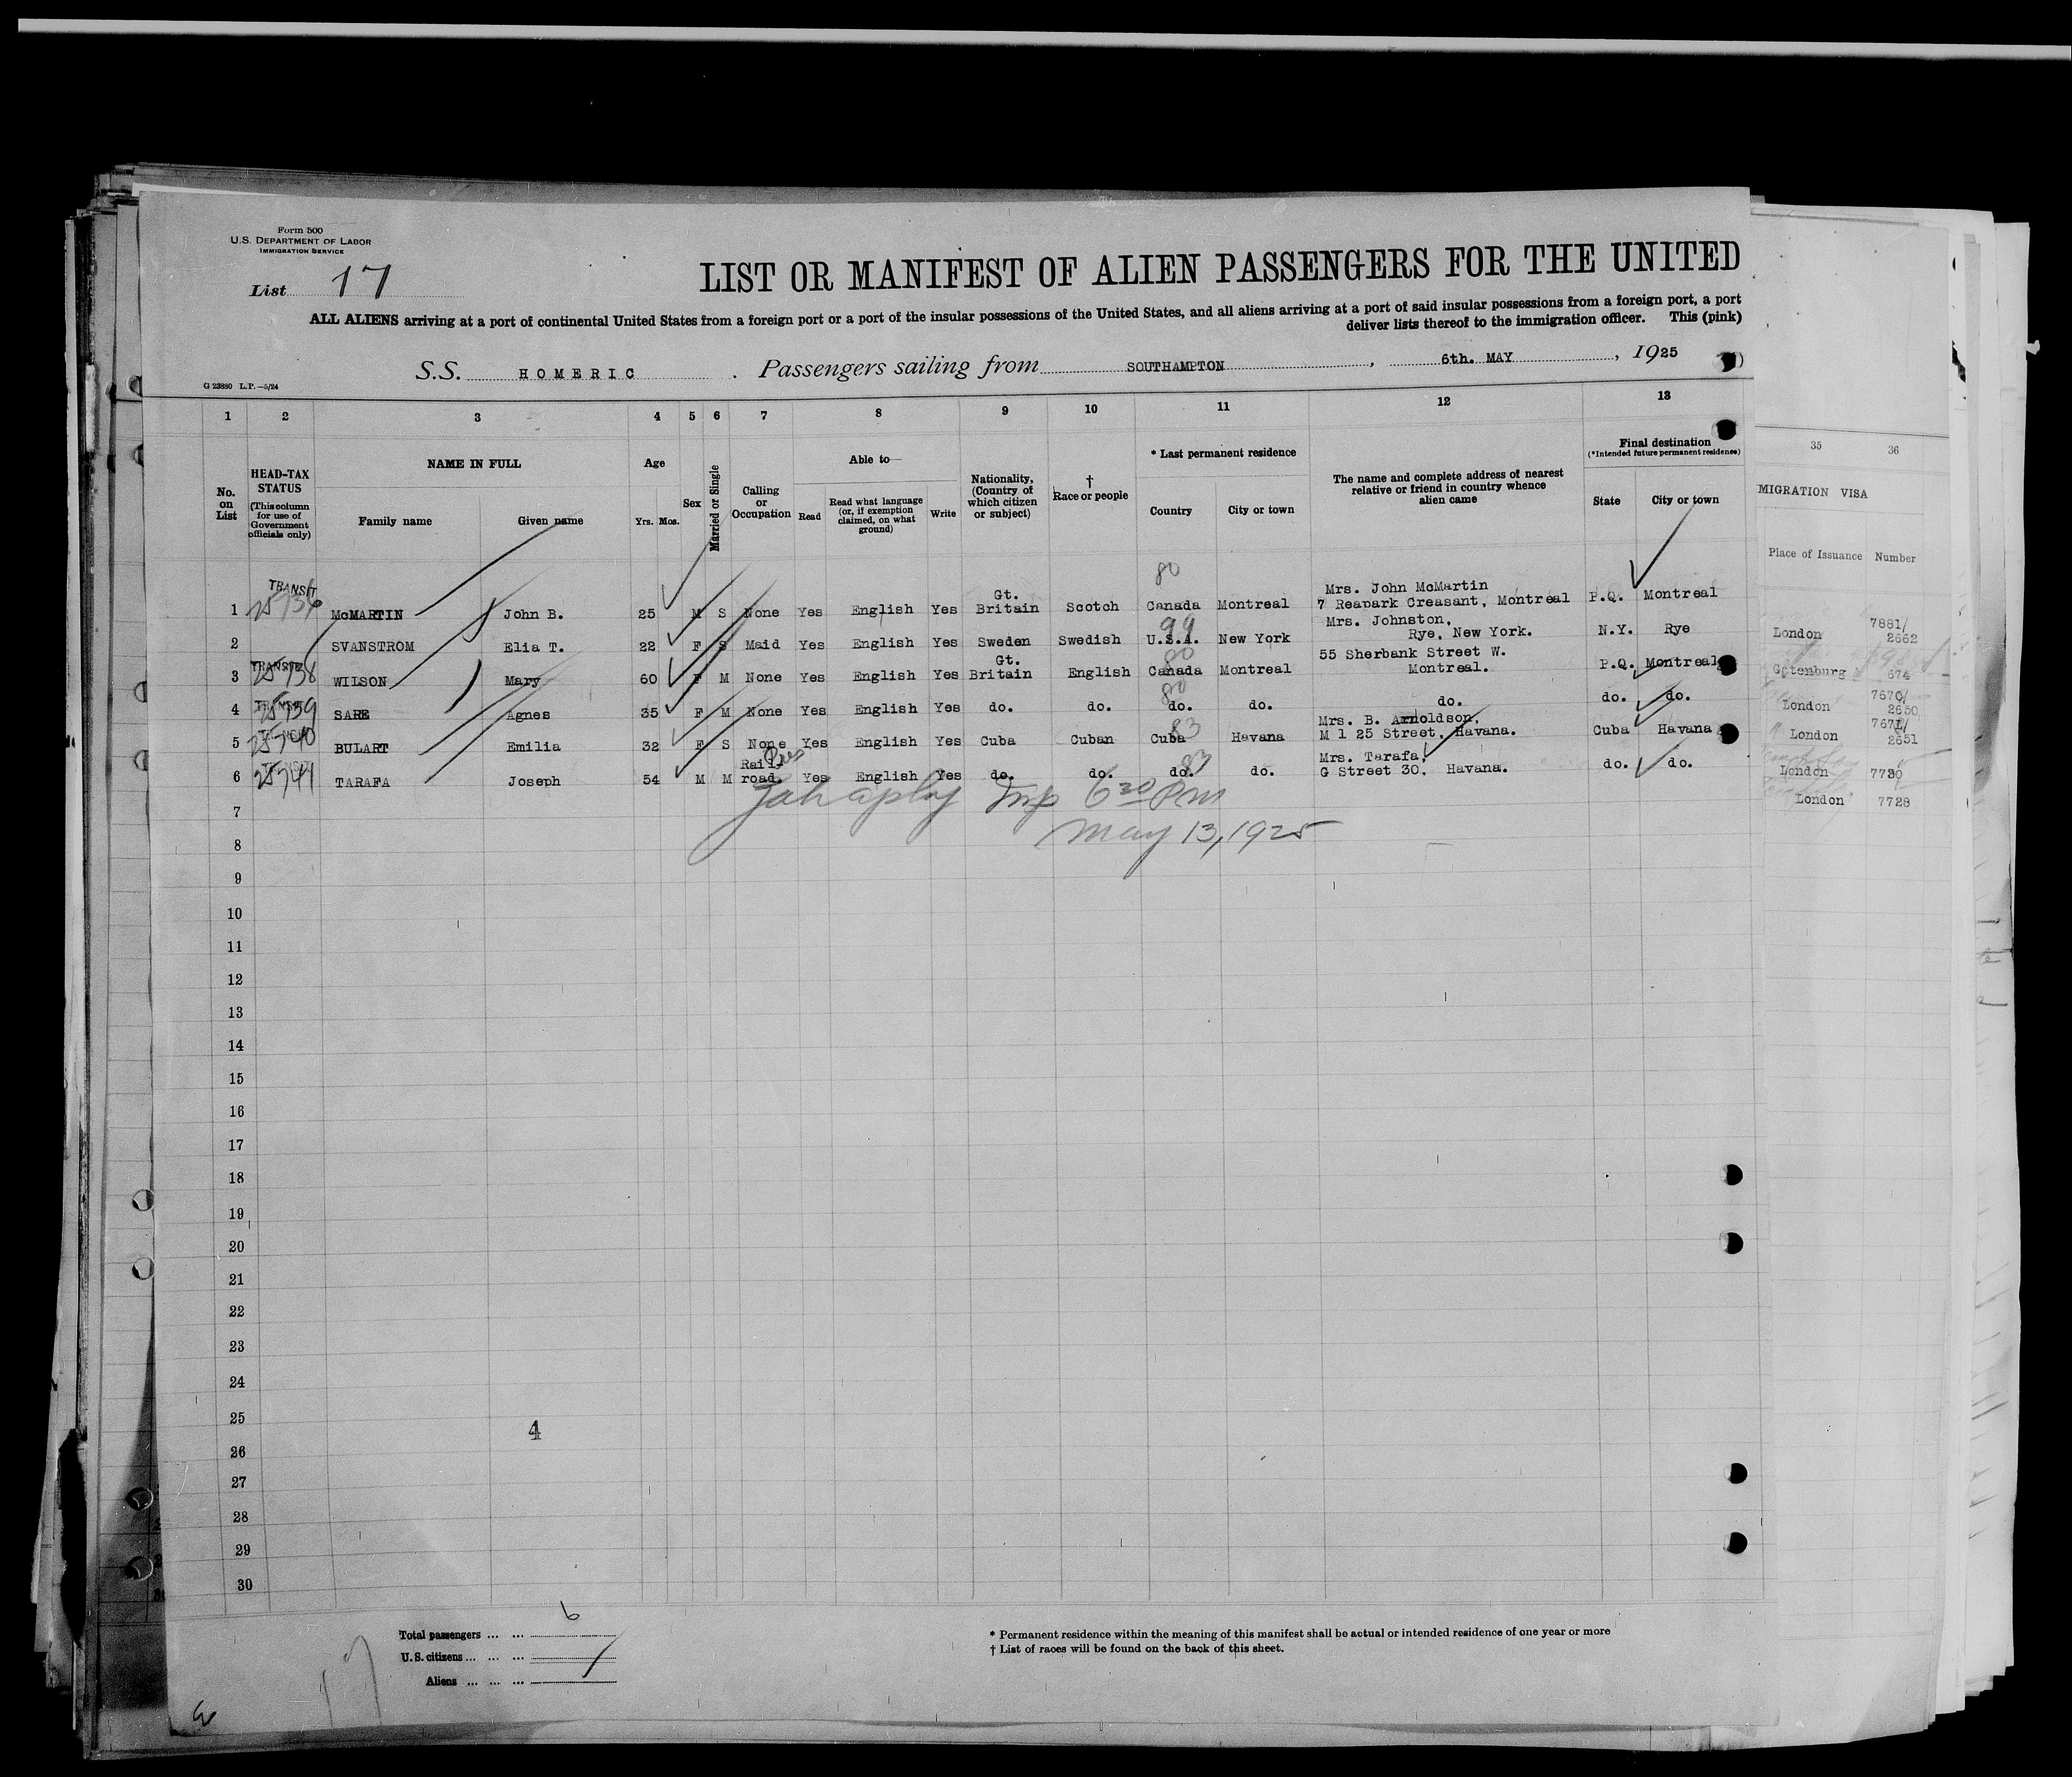 Form 500
U.S. DEPARTMENT OF LABOR
IMMIGRATION SERVICE
List 17
LIST OR MANIFEST OF ALIEN PASSENGERS FOR THE UNITED
ALL ALIENS arriving at a port of continental United States from a foreign port or a port of the insular possessions of the United States, and all aliens arriving at a port of said insular possessions from a foreign port, a port
deliver lists thereof to the immigration officer. This (pink)
S.S. HOMERIC. Passengers sailing from SOUTHAMPTON, 6th. MAY, 1925
G 23880 L.P.—5/24
1 2 3 4 5 6 7 8 9 10 11 12 13
35 36
No. on List
HEAD-TAX STATUS (This column for use of Government officials only)
NAME IN FULL
Family name Given name
Age
Yrs. Mos.
Sex
Married or Single
Calling or Occupation
Able to—
Read
Read what language (or, if exemption claimed, on what ground)
Write
Nationality, (Country of which citizen or subject)
† Race or people
* Last permanent residence
Country City or town
The name and complete address of nearest relative or friend in country whence alien came
Final destination
(*Intended future permanent residence)
State City or town
MIGRATION VISA
Place of Issuance Number
80
TRANSIT
1 McMARTIN John B. 25 M S None Yes English Yes Gt. Britain Scotch Canada Montreal Mrs. John McMartin 7 Reapark Creasant, Montreal P.Q. Montreal
99
2 SVANSTROM Elia T. 22 F S Maid Yes English Yes Sweden Swedish U.S.A. New York Mrs. Johnston, Rye, New York. N.Y. Rye
80
3 TRANSIT 25738 WILSON Mary 60 F M None Yes English Yes Gt. Britain English Canada Montreal 55 Sherbank Street W. Montreal. P.Q. Montreal
80
4 25739 SARE Agnes 35 F M None Yes English Yes do. do. do. do. do. do. do.
83
5 25740 BULART Emilia 32 F S None Yes English Yes Cuba Cuban Cuba Havana Mrs. B. Arnoldson, M 1 25 Street, Havana. Cuba Havana
83
6 25741 TARAFA Joseph 54 M M Rail-road. Yes English Yes do. do. do. do. Mrs. Tarafa, G Street 30, Havana. do. do.
London 7881/ 2662
Gotenburg 674
London 7670/ 2650
London 7671/ 2651
London 7730
London 7728
Insp 6 30 Pm
May 13, 1925
7
8
9
10
11
12
13
14
15
16
17
18
19
20
21
22
23
24
25
4
26
27
28
29
30
Total passengers ... ... 6
U.S. citizens ... ... ...
Aliens ... ... ...
* Permanent residence within the meaning of this manifest shall be actual or intended residence of one year or more
† List of races will be found on the back of this sheet.
17